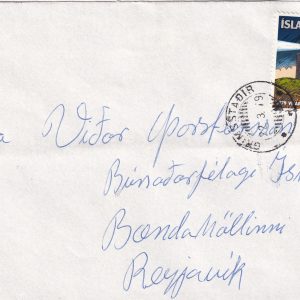 ÍSLA
GRÍMSSTAÐIR
2.3.79
a Viðar Þorsteinsson
Búnaðarfélagi Ísl
Bændahöllinni
Reykjavík